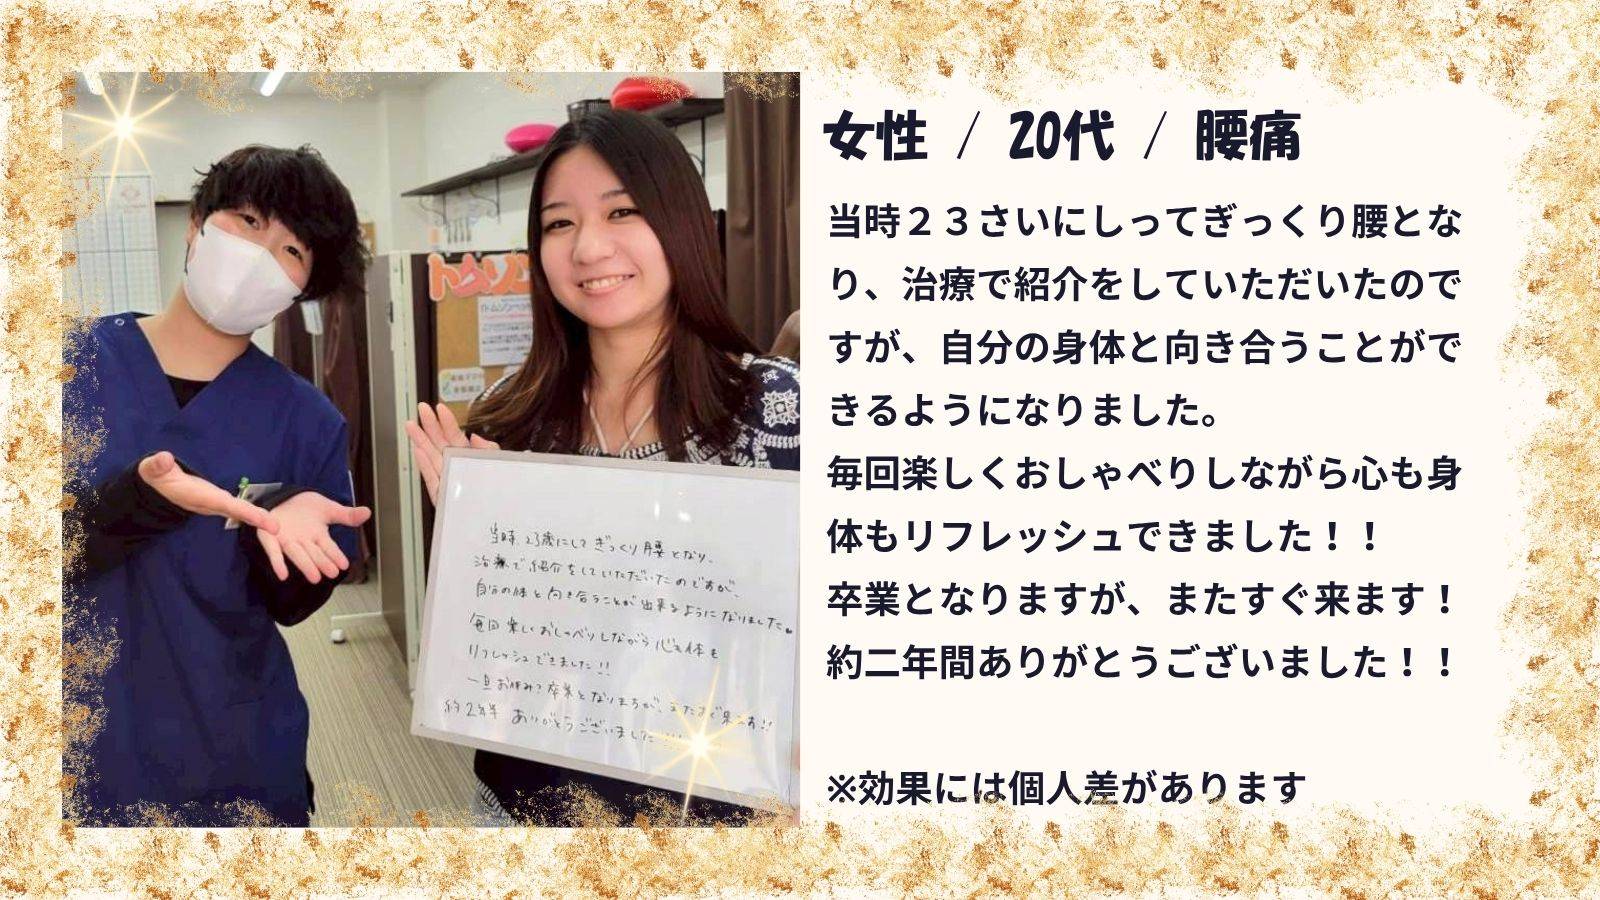 女性 / 20代 / 腰痛
当時２３さいにしってぎっくり腰とな
り、治療で紹介をしていただいたので
すが、自分の身体と向き合うことがで
きるようになりました。
毎回楽しくおしゃべりしながら心も身
体もリフレッシュできました！！
卒業となりますが、またすぐ来ます！
約二年間ありがとうございました！！
※効果には個人差があります
トムソン
当時、23歳にしてぎっくり腰となり、
治療で紹介をしていただいたのですが、
自分の体と向き合うことが出来るようになりました。
毎回楽しくおしゃべりしながら心も体も
リフレッシュできました!!
一旦お休み?卒業となりますが、またすぐ来ます!!
約2年半 ありがとうございました